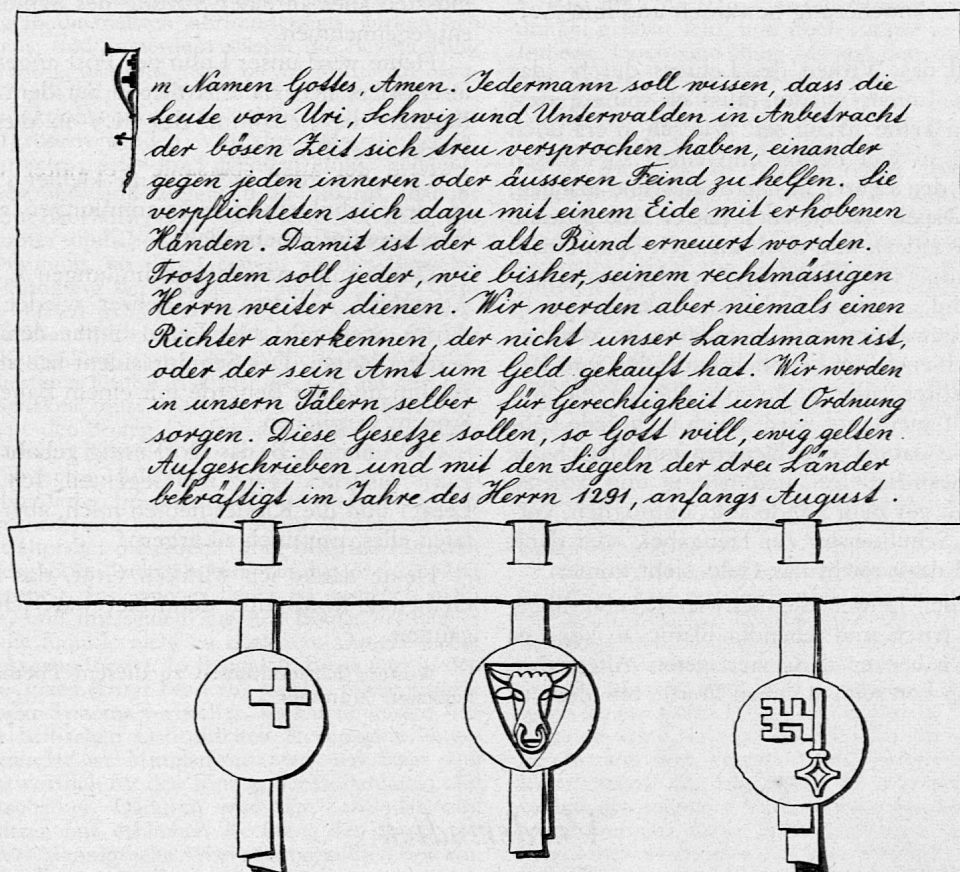 Im Namen Gottes, Amen. Jedermann soll wissen, dass die
Leute von Uri, Schwiz und Unterwalden in Anbetracht
der bösen Zeit sich treu versprochen haben, einander
gegen jeden inneren oder äusseren Feind zu helfen. Sie
verpflichteten sich dazu mit einem Eide mit erhobenen
Händen. Damit ist der alte Bund erneuert worden.
Trotzdem soll jeder, wie bisher, seinem rechtmässigen
Herrn weiter dienen. Wir werden aber niemals einen
Richter anerkennen, der nicht unser Landsmann ist,
oder der sein Amt um Geld gekauft hat. Wir werden
in unsern Tälern selber für Gerechtigkeit und Ordnung
sorgen. Diese Gesetze sollen, so Gott will, ewig gelten.
Aufgeschrieben und mit den Siegeln der drei Länder
bekräftigt im Jahre des Herrn 1291, anfangs August.